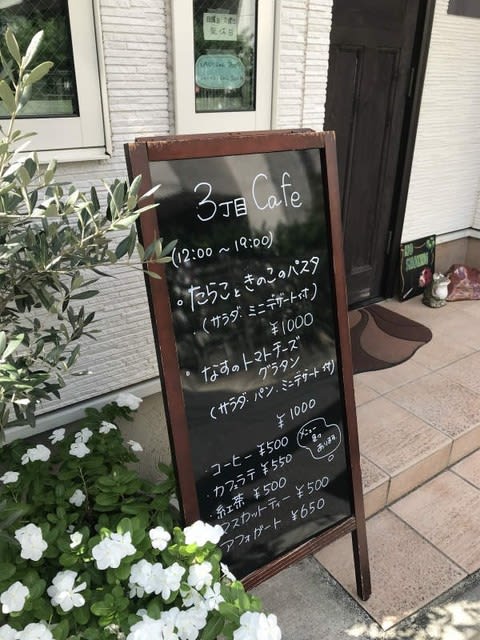 3丁目 Cafe
(12:00 ~ 19:00)
。たらこときのこのパスタ
(サラダ・ミニデザート付)
¥1000
。なすのトマトチーズ
グラタン
(サラダ・パン・ミニデザート付)
¥1000
・コーヒー ¥500
・カフェラテ ¥550
・紅茶 ¥500
・マスカットティー ¥500
・アフォガート ¥650
メニュー
あります
定休日